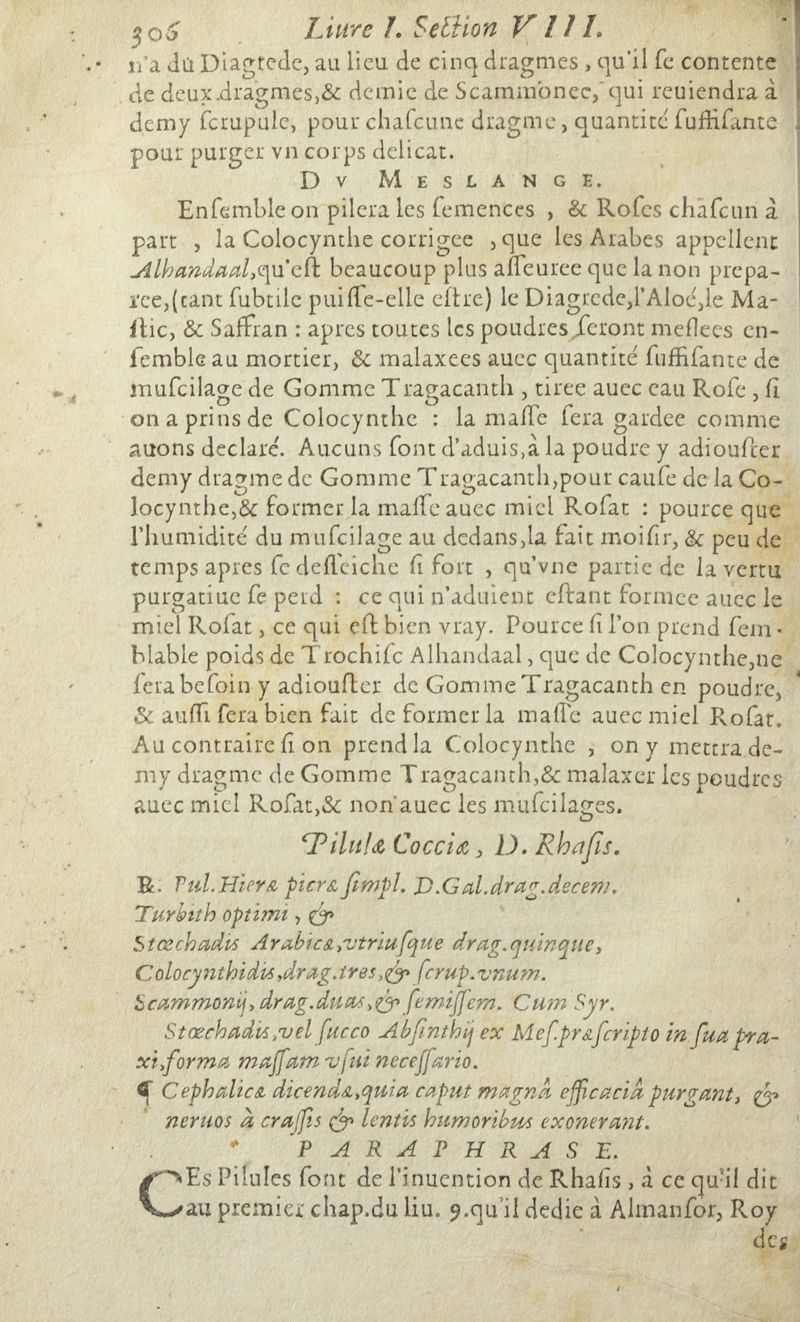 306 Liure I. Section VIII.
n'a du Diagrede, au lieu de cinq dragmes, qu'il ſe contente
de deux dragmes, & demie de Scammonee, qui reuiendra à
demy ſcrupule, pour chaſcune dragme, quantité ſuffiſante
pour purger vn corps delicat.
DV MESLANGE.
Enſemble on pilera les ſemences , & Roſes chaſcun à
part , la Colocynthe corrigee , que les Arabes appellent
Alhandaal, qu'eſt beaucoup plus aſſeuree que la non prepa-
ree, (tant ſubtile puiſſe-elle eſtre) le Diagrede, l'Aloé, le Ma-
ſtic, & Saffran : apres toutes les poudres ſeront meſlees en-
ſemble au mortier, & malaxees auec quantité ſuffiſante de
muſcilage de Gomme Tragacanth , tiree auec eau Roſe , ſi
on a prins de Colocynthe : la maſſe ſera gardee comme
auons declaré. Aucuns ſont d'aduis, à la poudre y adiouſter
demy dragme de Gomme Tragacanth, pour cauſe de la Co-
locynthe, & former la maſſe auec miel Roſat : pource que
l'humidité du muſcilage au dedans, la fait moiſir, & peu de
temps apres ſe deſſeiche ſi fort , qu'vne partie de la vertu
purgatiue ſe perd : ce qui n'aduient eſtant formee auec le
miel Roſat , ce qui eſt bien vray. Pource ſi l'on prend ſem-
blable poids de Trochiſc Alhandaal, que de Colocynthe, ne
ſera beſoin y adiouſter de Gomme Tragacanth en poudre,
& auſſi ſera bien fait de former la maſſe auec miel Roſat.
Au contraire ſi on prend la Colocynthe , on y mettra de-
my dragme de Gomme Tragacanth, & malaxer les poudres
auec miel Roſat, & non auec les muſcilages.
Pilulæ Cocciæ, D. Rhaſis.
℞. Pul. Hieræ picræ ſimpl. D. Gal. drag. decem.
Turbith optimi , &
Stœchadis Arabicæ, vtriuſque drag. quinque,
Colocynthidis, drag. tres, & ſcrup. vnum.
Scammonij, drag. duas, & ſemiſſem. Cum Syr.
Stœchadis, vel ſucco Abſinthij ex Meſ. præſcripto in ſua pra-
xi, forma maſſam vſui neceſſario.
¶ Cephalicæ dicendæ, quia caput magnâ efficaciâ purgant, &
neruos à craſſis & lentis humoribus exonerant.
PARAPHRASE.
CEs Pilules ſont de l'inuention de Rhaſis , à ce qu'il dit
au premier chap. du liu. 9. qu'il dedie à Almanſor, Roy
des